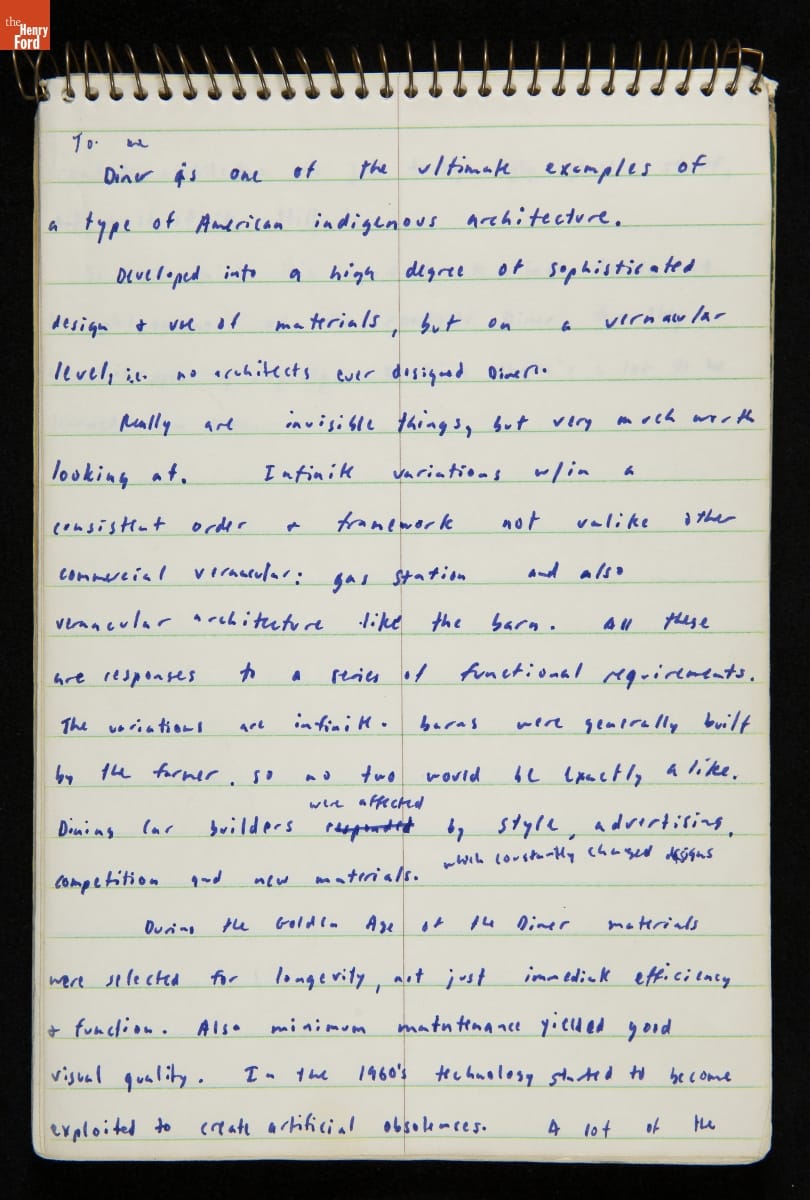 the
Henry
Ford
To me
Diner is one of the ultimate examples of
a type of American indigenous architecture.
Developed into a high degree of sophisticated
design & use of materials, but on a vernacular
level, i.e. no architects ever designed Diners.
Really are invisible things, but very much worth
looking at. Infinite variations w/in a
consistent order & framework not unlike other
commercial vernacular: gas station and also
vernacular architecture like the barn. All these
are responses to a series of functional requirements.
The variations are infinite. barns were generally built
by the farmer, so no two would be exactly alike.
were affected
Dining Car builders responded by style, advertising,
competition and new materials. which constantly changed designs
During the Golden Age of the Diner materials
were selected for longevity, not just immediate efficiency
& function. Also minimum maintenance yielded good
visual quality. In the 1960's technology started to become
exploited to create artificial obsolences. A lot of the